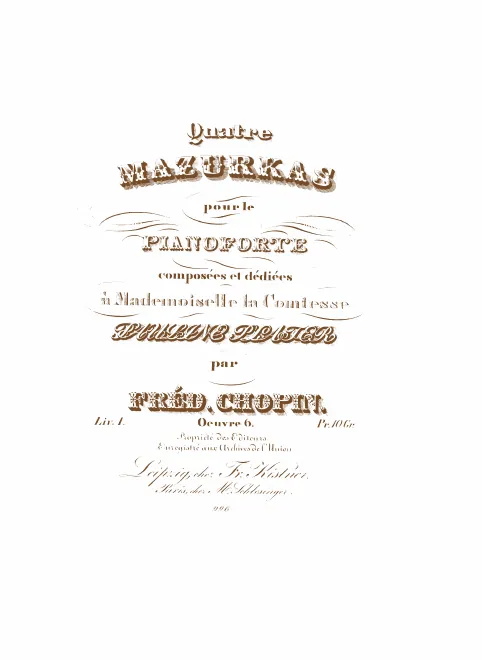 Quatre
MAZURKAS
pour le
PIANOFORTE
composées et dédiées
à Mademoiselle la Comtesse
PAULINE PLATER
par
FRÉD. CHOPIN.
Liv. 1. Oeuvre 6. Pr. 10 Gr.
Propriété des Editeurs.
Enregistré aux Archives de l'Union
Leipzig, chez Fr. Kistner.
Paris, chez M. Schlesinger.